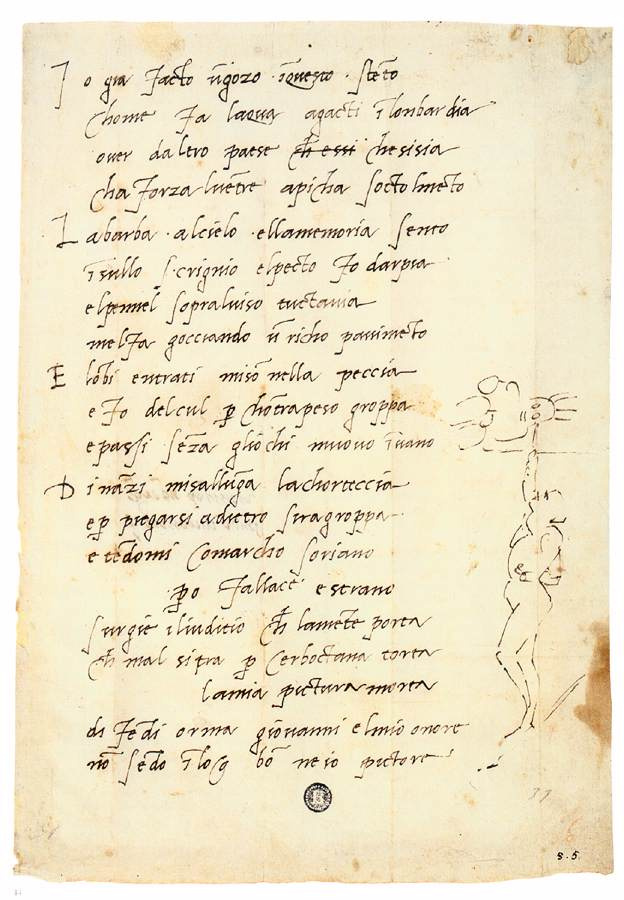 I o gia facto ũgozo ĩquesto stẽto
chome fa laqua agacti ĩ lonbardia
over daltro paese ch̃ essi chesisia
cha forza lvẽtre apicha socto lmẽto
L abarba alcielo ellamemoria sento
ĩsullo scrignio elpecto fo darpia
elpennel sopraluiso tuctavia
melfa gocciando ũ richo pauimẽto
E lõbi entrati misõ nella peccia
e fo delcul p̱ chõtrapeso groppa
epassi sẽza gliochi muouo ĩuano
D inãzi misallũga lachorteccia
ep̱ piegarsi adietro siragroppa
e tẽdomi comarcho soriano
p̱o fallace e strano
surgie iliuditio ch̃ lamẽte porta
ch̃ mal sitra p̱ cerboctana torta
lamia pictura morta
di fẽdi orma giovanni elmio onore
nõ sẽdo ĩ log bõ ne io pictore
37
s. 5.